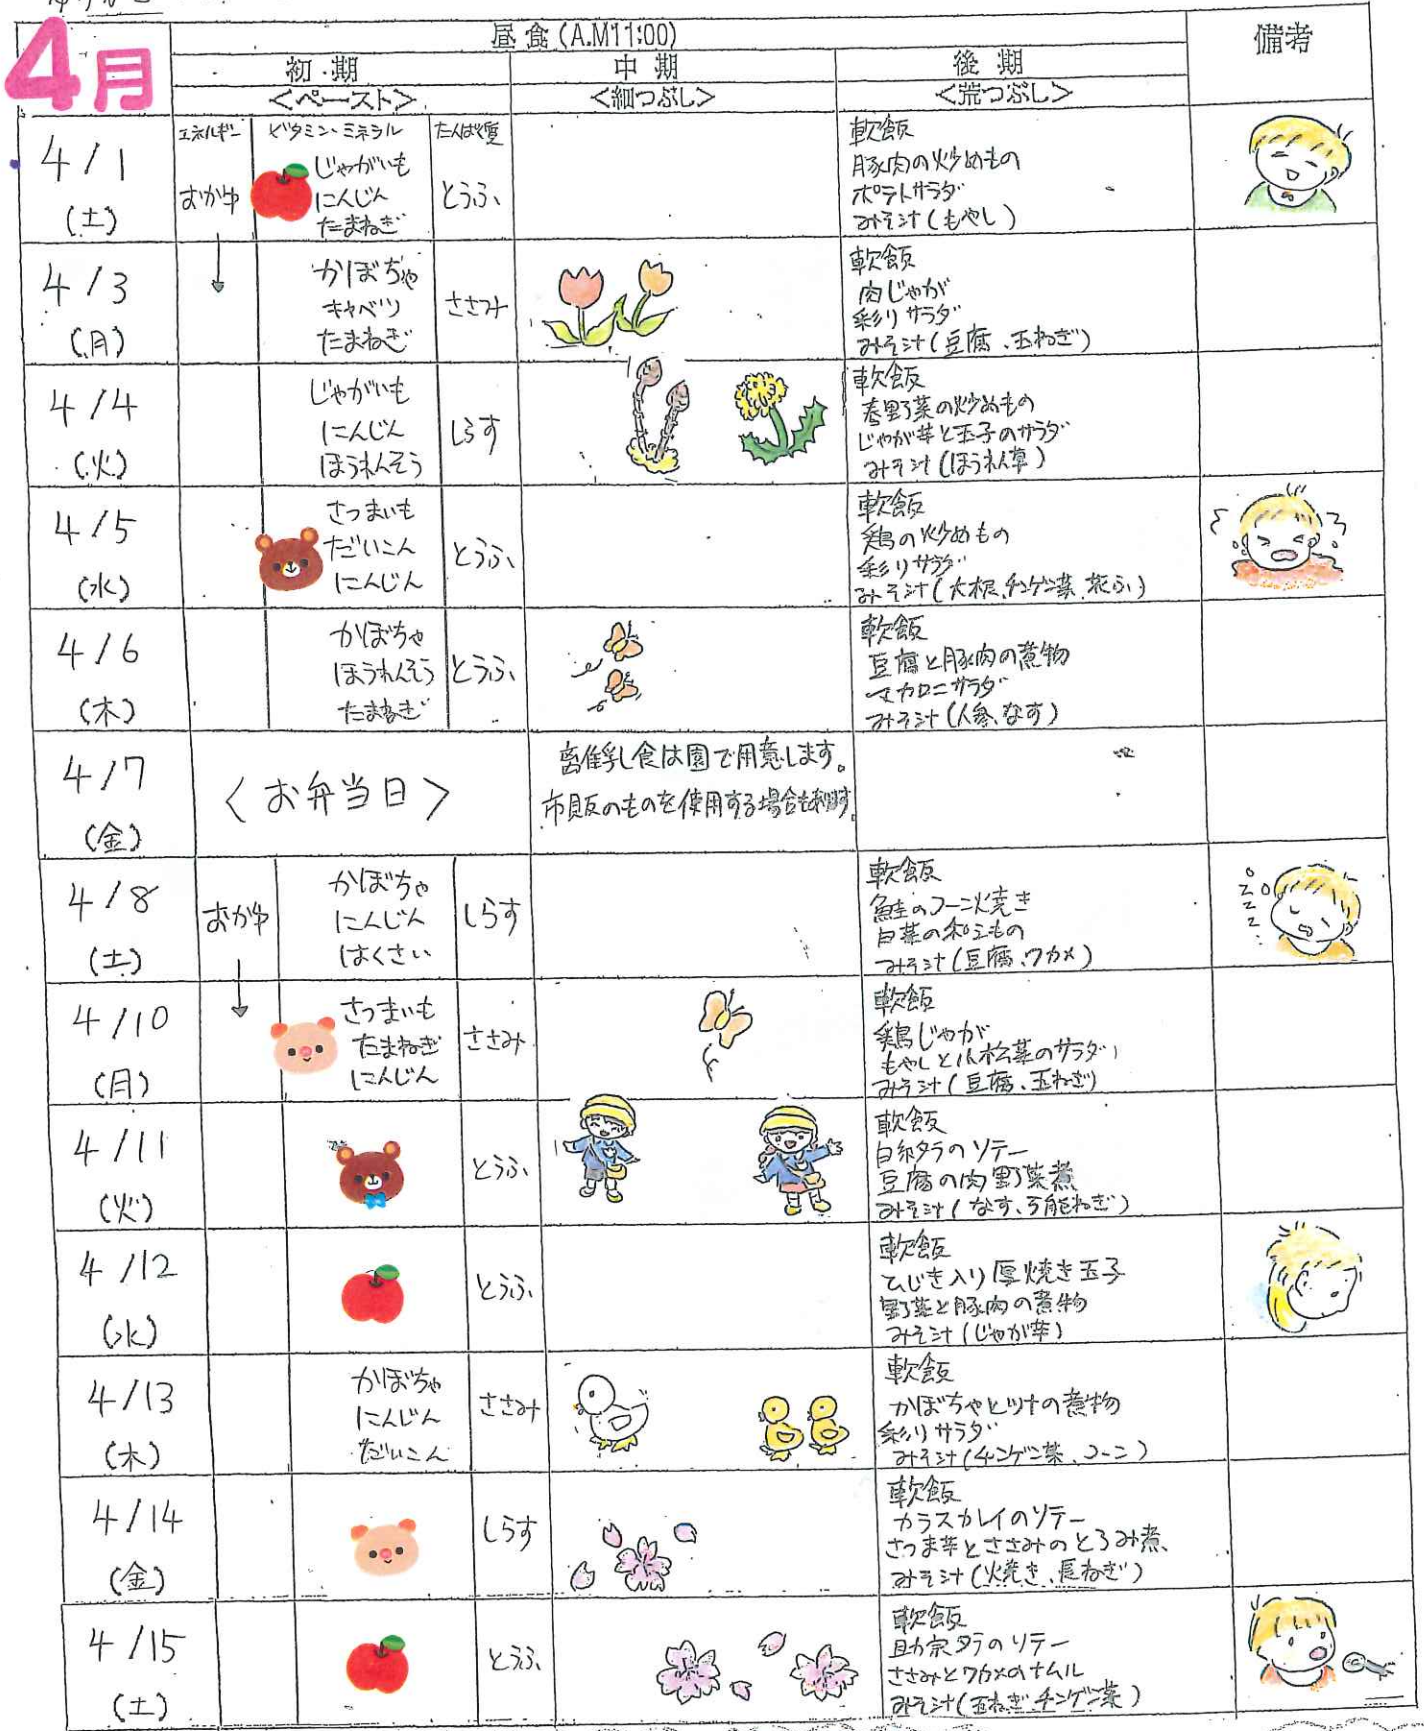 4月
昼食(A.M11:00)
備考
初期
中期
後期
<ペースト>
<細つぶし>
<荒つぶし>
4/1
(土)
エネルギー
ビタミン・ミネラル
たんぱく質
おかゆ
じゃがいも
にんじん
たまねぎ
とうふ
軟飯
豚肉の炒めもの
ポテトサラダ
みそ汁(もやし)
4/3
(月)
かぼちゃ
キャベツ
たまねぎ
ささみ
軟飯
肉じゃが
彩りサラダ
みそ汁(豆腐、玉ねぎ)
4/4
(火)
じゃがいも
にんじん
ほうれんそう
しらす
軟飯
春野菜の炒めもの
じゃが芋と玉子のサラダ
みそ汁(ほうれん草)
4/5
(水)
さつまいも
だいこん
にんじん
とうふ
軟飯
鶏の炒めもの
彩りサラダ
みそ汁(大根、チンゲン菜、花ふ)
4/6
(木)
かぼちゃ
ほうれんそう
たまねぎ
とうふ
軟飯
豆腐と豚肉の煮物
マカロニサラダ
みそ汁(人参、なす)
4/7
(金)
<お弁当日>
離乳食は園で用意します。
市販のものを使用する場合も有ります。
4/8
(土)
おかゆ
かぼちゃ
にんじん
はくさい
しらす
軟飯
鮭のコーン焼き
白菜の和えもの
みそ汁(豆腐、ワカメ)
4/10
(月)
さつまいも
たまねぎ
にんじん
ささみ
軟飯
鶏じゃが
もやしと小松菜のサラダ
みそ汁(豆腐、玉ねぎ)
4/11
(火)
とうふ
軟飯
白糸タラのソテー
豆腐の肉野菜煮
みそ汁(なす、万能ねぎ)
4/12
(水)
とうふ
軟飯
ひじき入り厚焼き玉子
野菜と豚肉の煮物
みそ汁(じゃが芋)
4/13
(木)
かぼちゃ
にんじん
だいこん
ささみ
軟飯
かぼちゃとツナの煮物
彩りサラダ
みそ汁(チンゲン菜、コーン)
4/14
(金)
しらす
軟飯
カラスカレイのソテー
さつま芋とささみのとろみ煮
みそ汁(火焼き、長ねぎ)
4/15
(土)
とうふ
軟飯
助宗タラのソテー
ささみとワカメのナムル
みそ汁(玉ねぎ、チンゲン菜)